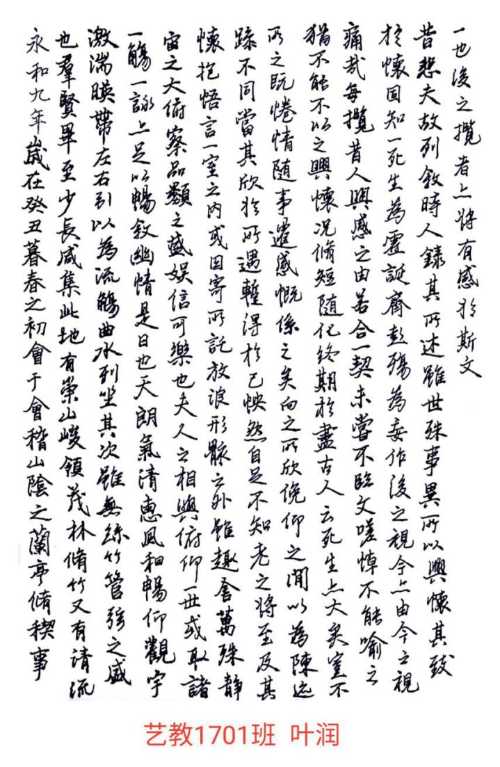 永和九年歲在癸丑暮春之初會于會稽山陰之蘭亭脩稧事
也羣賢畢至少長咸集此地有崇山峻領茂林脩竹又有清流
激湍暎帶左右引以為流觴曲水列坐其次雖無絲竹管弦之盛
一觴一詠亦足以暢敘幽情是日也天朗氣清惠風和暢仰觀宇
宙之大俯察品類之盛娛信可樂也夫人之相與俯仰一世或取諸
懷抱悟言一室之內或因寄所託放浪形骸之外雖趣舍萬殊靜
躁不同當其欣於所遇暫得於己怏然自足不知老之將至及其
所之既惓情隨事遷感慨係之矣向之所欣俛仰之閒以為陳迹
猶不能不以之興懷況脩短隨化終期於盡古人云死生亦大矣豈不
痛哉每攬昔人興感之由若合一契未嘗不臨文嗟悼不能喻之
於懷固知一死生為虛誕齊彭殤為妄作後之視今亦由今之視
昔悲夫故列敘時人錄其所述雖世殊事異所以興懷其致
一也後之攬者亦將有感於斯文
艺教1701班 叶润